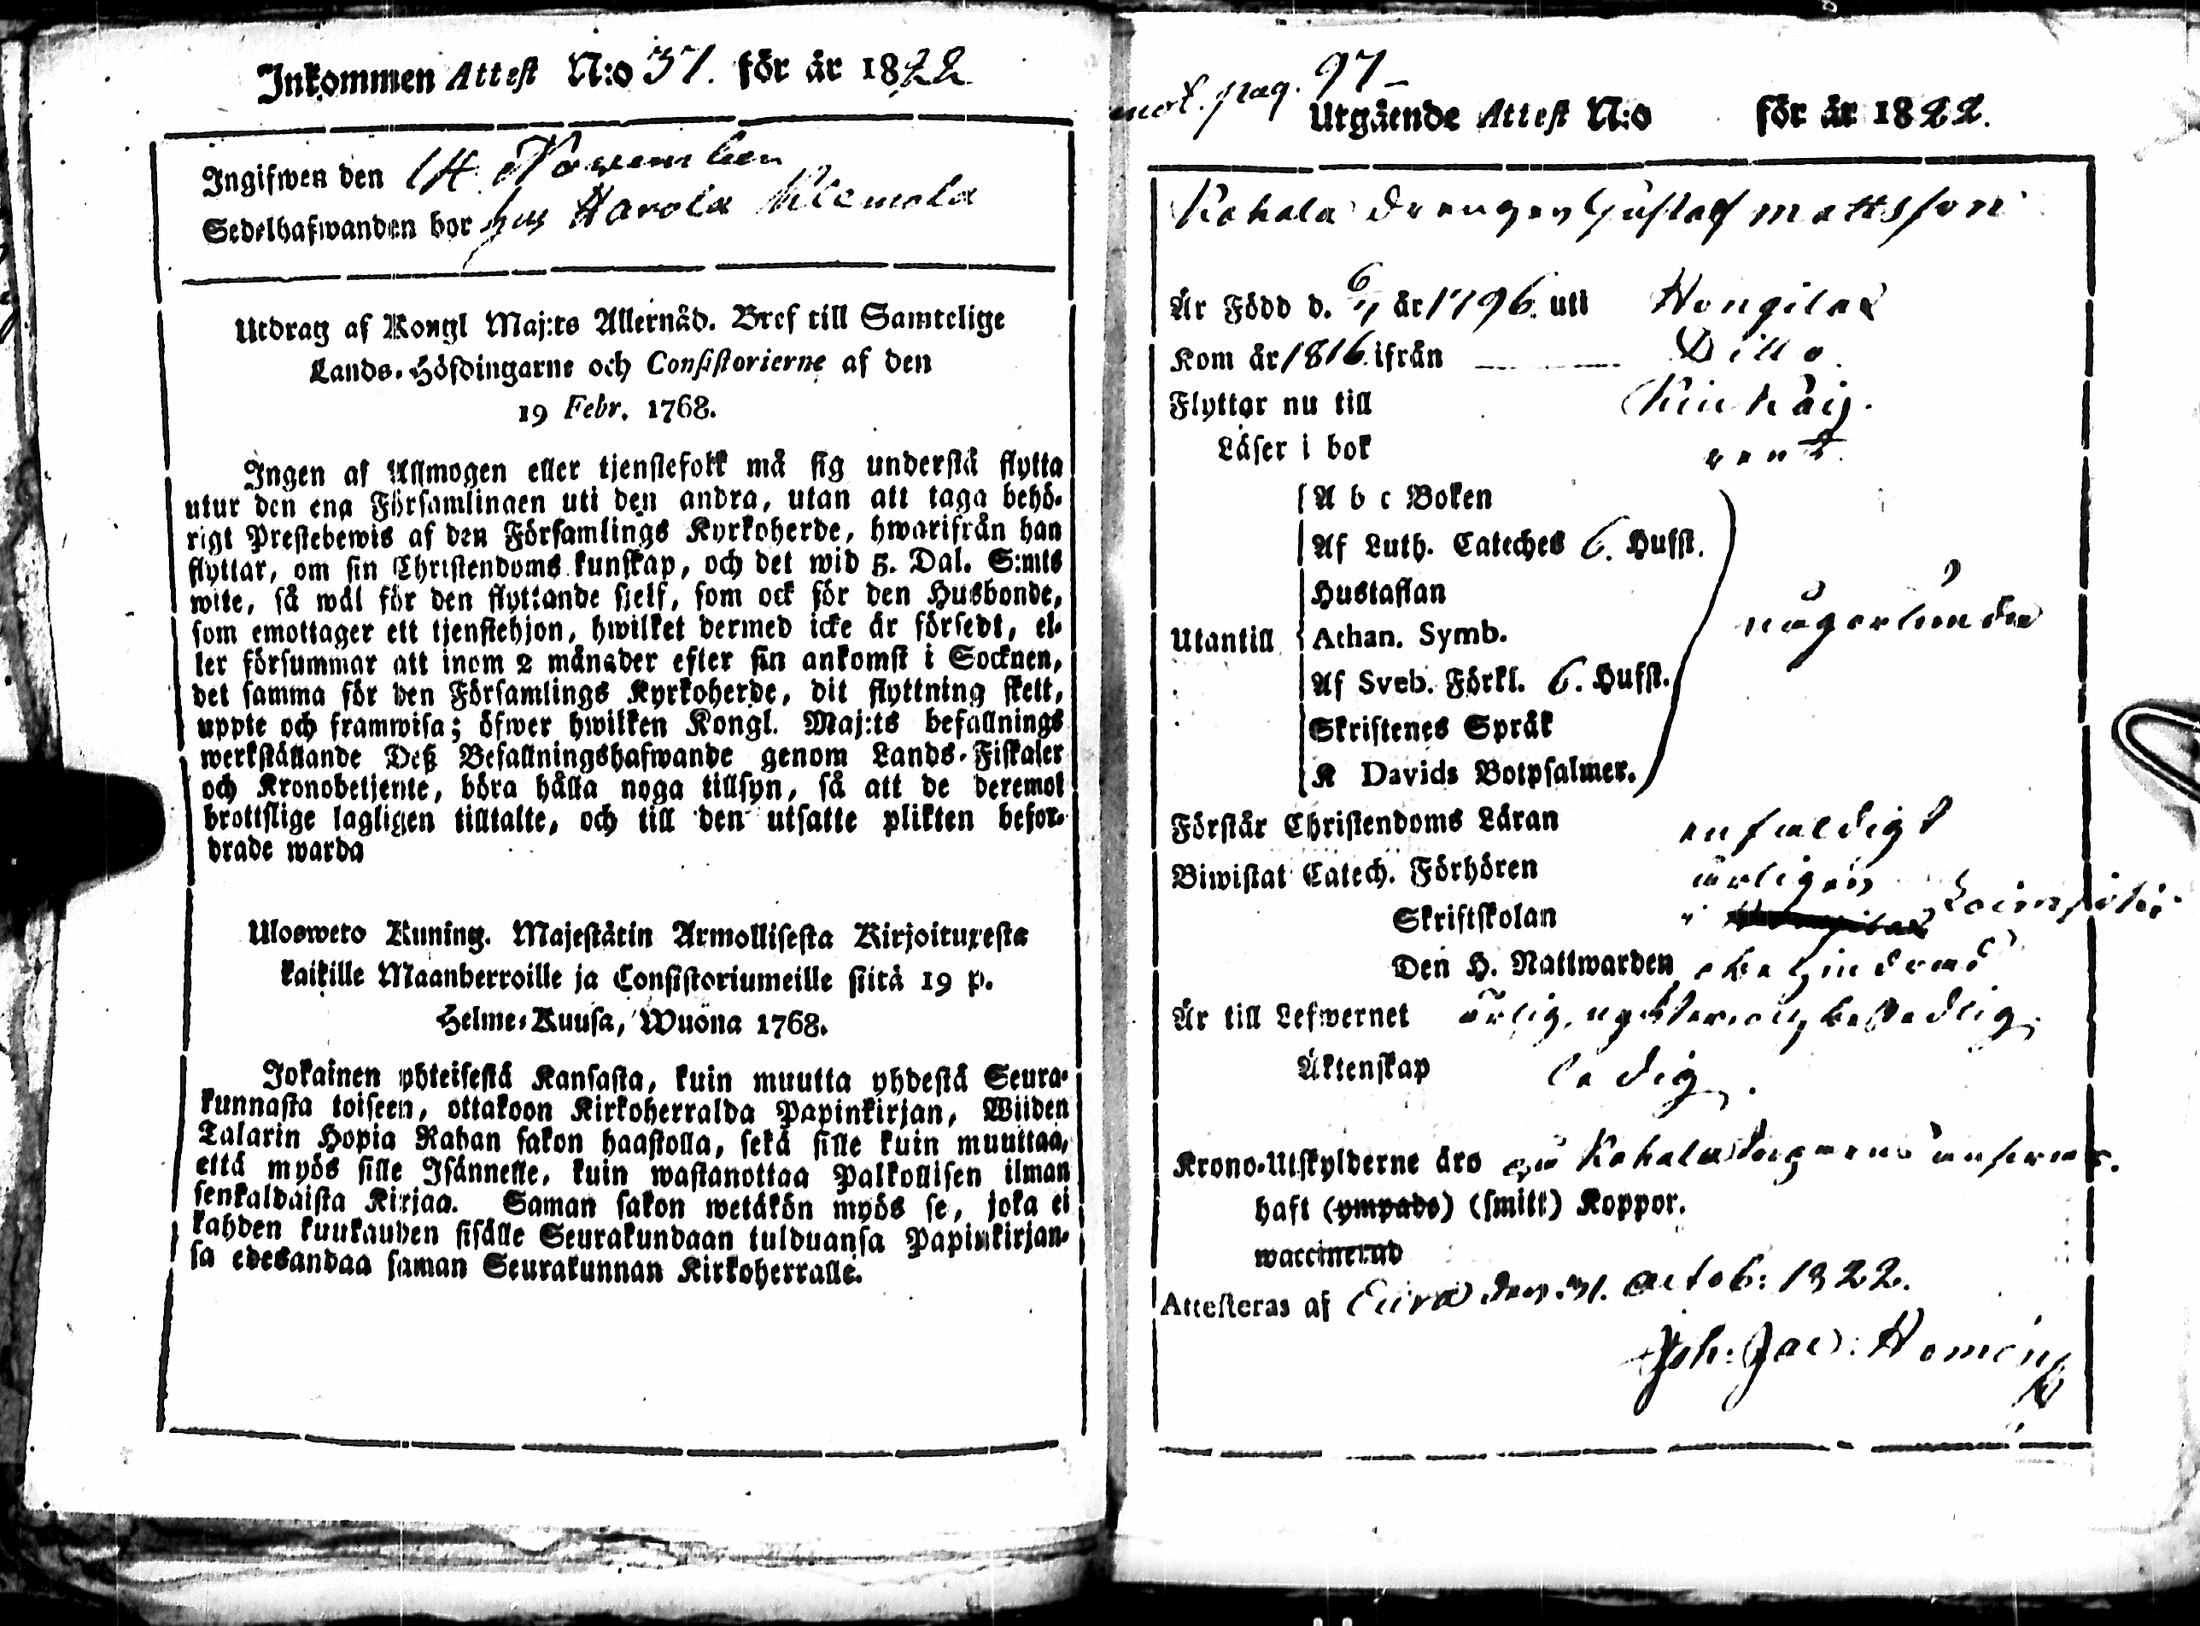 Inkommen Attest N:o 37. för år 1822
Ingifwen den 14 November
Sedelhafwanden bor hos Harola Klemola
Utdrag af Kongl Maj:ts Allernåd. Bref till Samtelige
Lands-Höfdingarne och Consistorierne af den
19 Febr. 1768.
Ingen af Allmogen eller tjenstefolk må sig understå flytta
utur den ena Församlingen uti den andra, utan att taga behö-
rigt Prestebewis af den Församlings Kyrkoherde, hwarifrån han
flyttar, om sin Christendoms kunskap, och det wid 5. Dal. S:mts
wite, så wäl för den flyttande sjelf, som ock för den Husbonde,
som emottager ett tjenstehjon, hwilket dermed icke är försedt, el-
ler försummar att inom 2 månader efter sin ankomst i Socknen,
det samma för den Församlings Kyrkoherde, dit flyttning skett,
uppte och framwisa; öfwer hwilken Kongl. Maj:ts befallnings
werkställande Deß Befallningshafwande genom Lands-Fiskaler
och Kronobetjente, böra hålla noga tillsyn, så att de deremot
brottslige lagligen tilltalte, och till den utsatte plikten befor-
drade warda
Ulosweto Kuning. Majestätin Armollisesta Kirjoituxesta
kaikille Maanherroille ja Consistoriumeille siitä 19 p.
Helme-Kuusa, Wuona 1768.
Jokainen yhteisestä Kansasta, kuin muutta yhdestä Seura-
kunnasta toiseen, ottakoon Kirkoherralda Papinkirjan, Wiiden
Talarin Hopia Rahan sakon haastolla, sekä sille kuin muuttaa,
että myös sille Isännelle, kuin wastanottaa Palkollisen ilman
senkaldaista Kirjaa. Saman sakon wetäkön myös se, joka ei
kahden kuukauden sisälle Seurakundaan tulduansa Papinkirjan-
sa edesandaa saman Seurakunnan Kirkoherralle.
pag. 97
Utgående Attest N:o för år 1822.
Kahala drengen Gustaf Mattsson
Är Född d. 6/11 år 1796. uti Hongilax
Kom år 1816. ifrån Ditto
Flyttar nu till Kiukais.
Läser i bok rent
Utantill
A b c Boken
Af Luth. Cateches 6. Hufst.
Hustaflan
Athan. Symb.
Af Sveb. Förkl. 6. Hufst.
Skriftenes Språk
K Davids Botpsalmer.
någorlunda
Förstår Christendoms Läran enfaldigt
Biwistat Catech. Förhören årligen
Skriftskolan i
Den H. Nattwarden obehindrad
Är till Lefwernet ärlig, nykter och beskedlig
Äktenskap ledig.
Krono-Utskylderne äro på Kahala
haft (ympade) (smitt) Koppor.
waccinerad
Attesteras af Eura den 31. Octob: 1822.
Joh: Jac: Homén